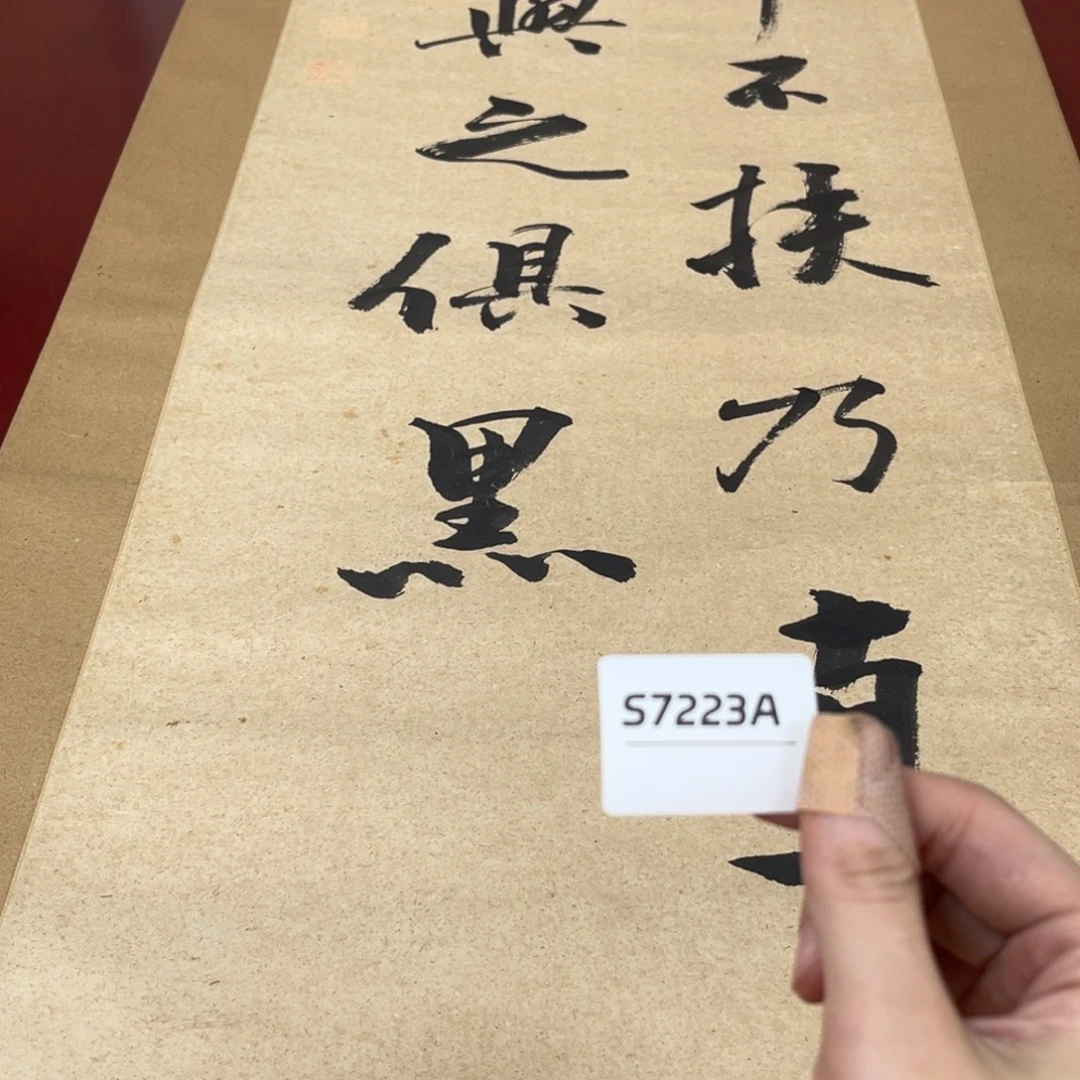 不扶乃直
與之俱黑
S7223A